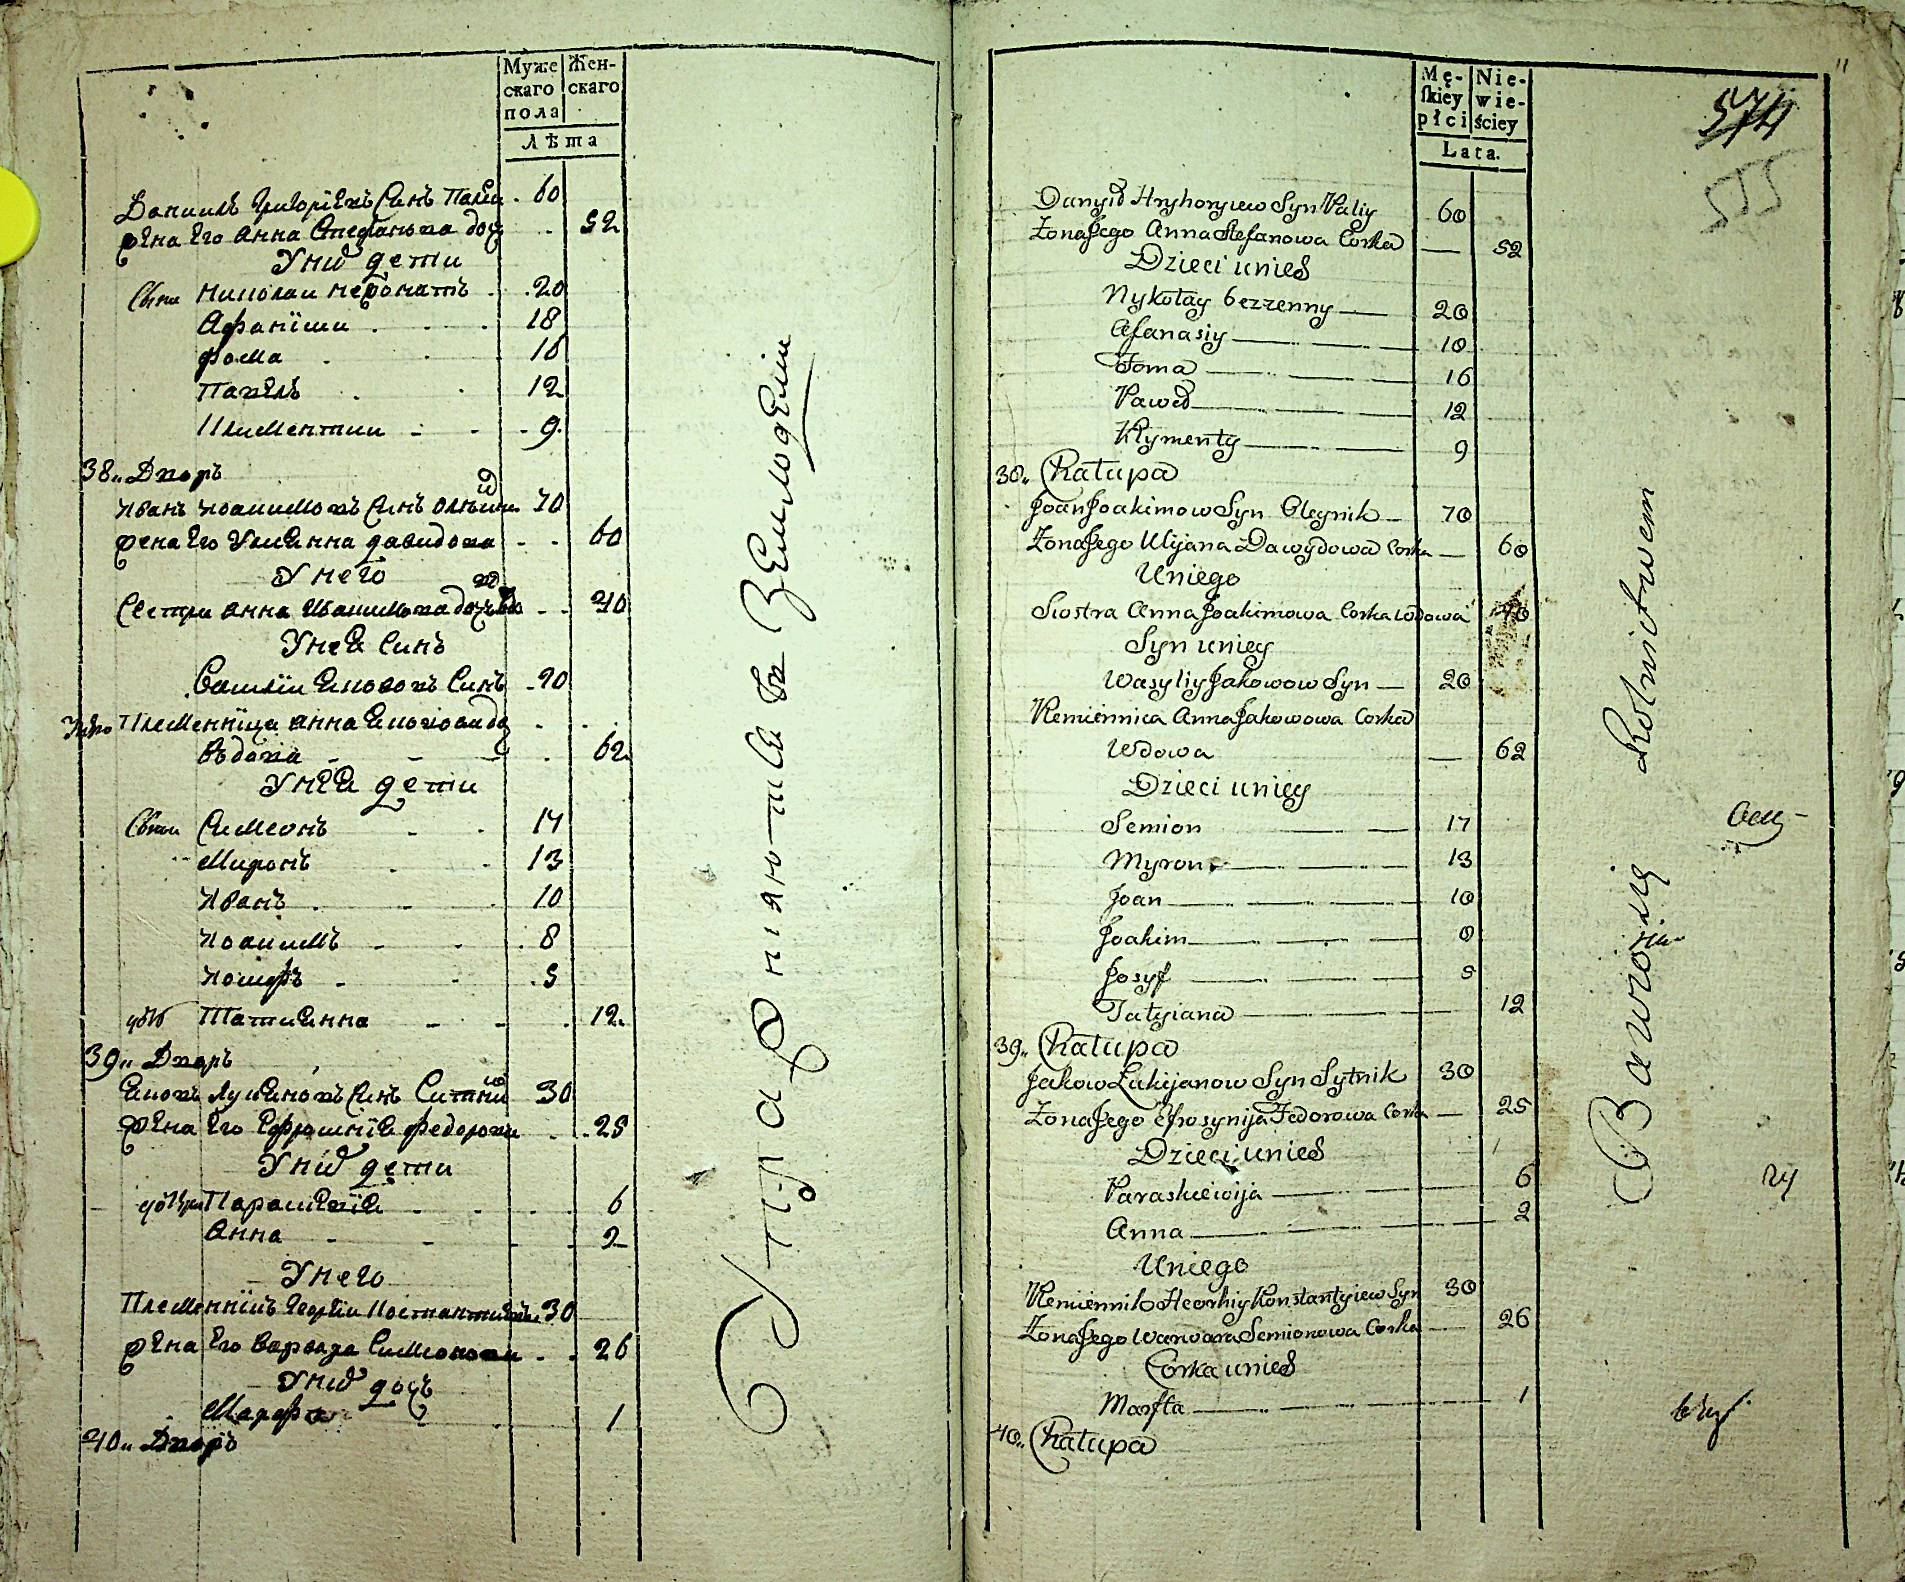 Муже Жен-
скаго скаго
пола
Лѣта
Данилъ Григоріевъ Синъ Палѣи 60
жена Его Анна Стефанова доч 52
Унихъ дети
Сыни Николаи Нежонатъ 20
Афанісии 18
Фома 16
Павелъ 12
Климентии 9
38 Дворъ
Иванъ Иоакимовъ Синъ Олѣиникъ 70
жена Его Улиянна Давидова 60
У него
Сестра Анна Иоакимова дочъ 40
У неи Синъ
Василіи Якововъ Синъ 20
Племенніца Анна Яковова до
Вьдова 62
У неи дети
Сыни Симеонъ 17
Миронъ 13
Иванъ 10
Иоакимъ 8
Иосифъ 5
Татиянна 12
39 Дворъ
Яковъ Лукяновъ Синъ Ситник 30
Жена Его Ефросинія Федорова 25
Унихъ дети
Параскевія 6
Анна 2
У него
Племеннікъ Георгіи Костантиновъ 30
жена Его Варвара Симионова 26
Унихъ дочъ
Марфа 1
40 Дворъ
Mę- Nie-
skiey wie-
płci ściey
Lata.
574
555
Danyło Hryhoryiew Syn Paliy 60
Żona Jego Anna Stefanowa Corka 52
Dzieci unich
Nykołay bezzenny 20
Afanasiy 18
Foma 16
Paweł 12
Klymenty 9
38 Chałupa
Joan Joakimow Syn Oleynik 70
Żona Jego Ulijana Dawydowa Corka 60
Uniego
Siostra Anna Joakimowa Corka Wdowa 40
Syn uniey
Wasyliy Jakowow Syn 20
Plemiennica Anna Jakowowa Corka
Wdowa 62
Dzieci uniey
Semion 17
Myron 13
Joan 10
Joakim 8
Josyf 5
Tatyiana 12
39 Chałupa
Jakow Łukijanow Syn Sytnik 30
Żona Jego Efrosynija Fedorowa Corka 25
Dzieci unich
Paraskiewija 6
Anna 2
Uniego
Plemiennik Heorhiy Konstantyiew Syn 30
Żona Jego Warwara Semionowa Corka 26
Corka unich
Marfta 1
40 Chałupa
Bawią się Rolnictwem